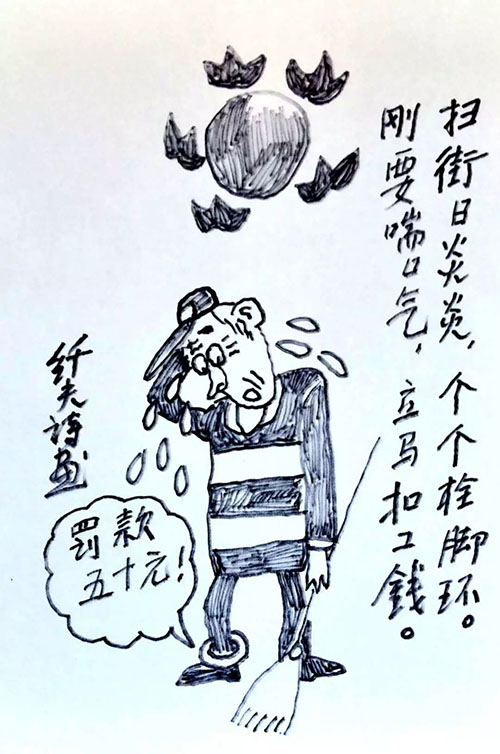 扫街日炎炎，个个栓脚环。
刚要喘口气，立马扣工錢。
纤夫詩画
罚款
五十元！